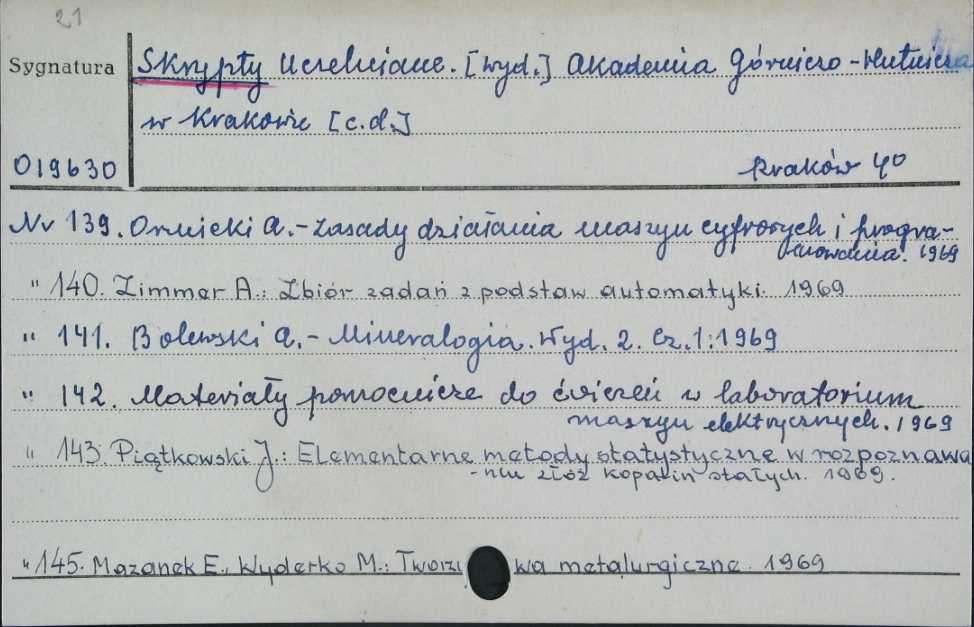 21
Sygnatura
Skrypty Uczelniane. [Wyd.] Akademia Górniczo-Hutnicza
w Krakowie [c.d.]
019630
Kraków 4°
Nr 139. Ormicki A. - Zasady działania maszyn cyfrowych i progra-
mowania. 1969
" 140. Zimmer A.: Zbiór zadań z podstaw automatyki. 1969
" 141. Bolewski A. - Mineralogia. Wyd. 2. Cz. 1: 1969
" 142. Materiały pomocnicze do ćwiczeń w laboratorium
maszyn elektrycznych. 1969
" 143. Piątkowski J.: Elementarne metody statystyczne w rozpoznawa
-niu złóż kopalin stałych. 1969.
" 145. Mazanek E., Wyderko M.: Tworzywa metalurgiczne. 1969